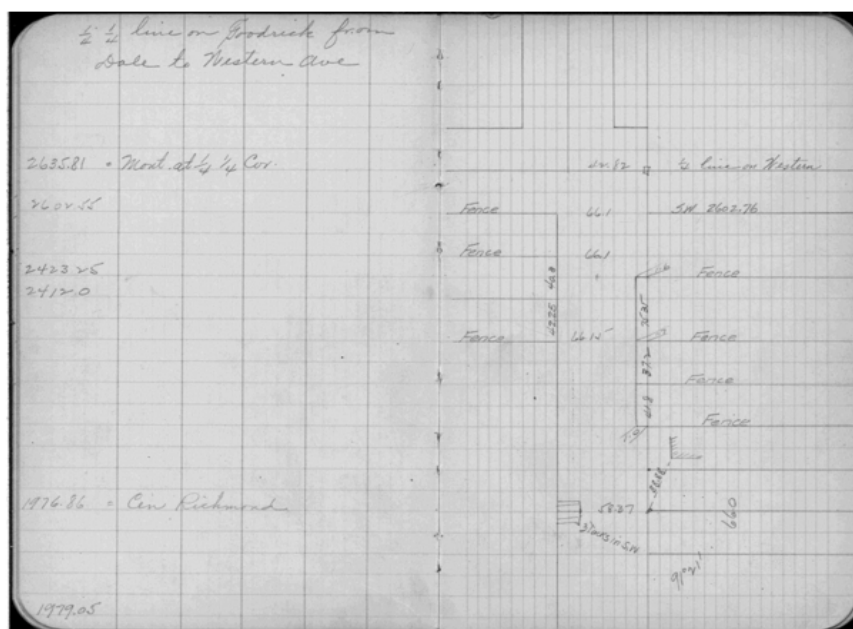 ½ ¼ line on Goodrick from
Dale to Western Ave
2635.81 • Mont. at ¼ ¼ Cor.
2602.55
2423.25
2412.0
1976.86 • Cen Richmond
1979.05
42.82 ½ line on Western
Fence 66.1 S.W. 2602.76
Fence 66.1
Fence
Fence 66.15 Fence
Fence
Fence
37.2
41.8
58.37
660
91°21'